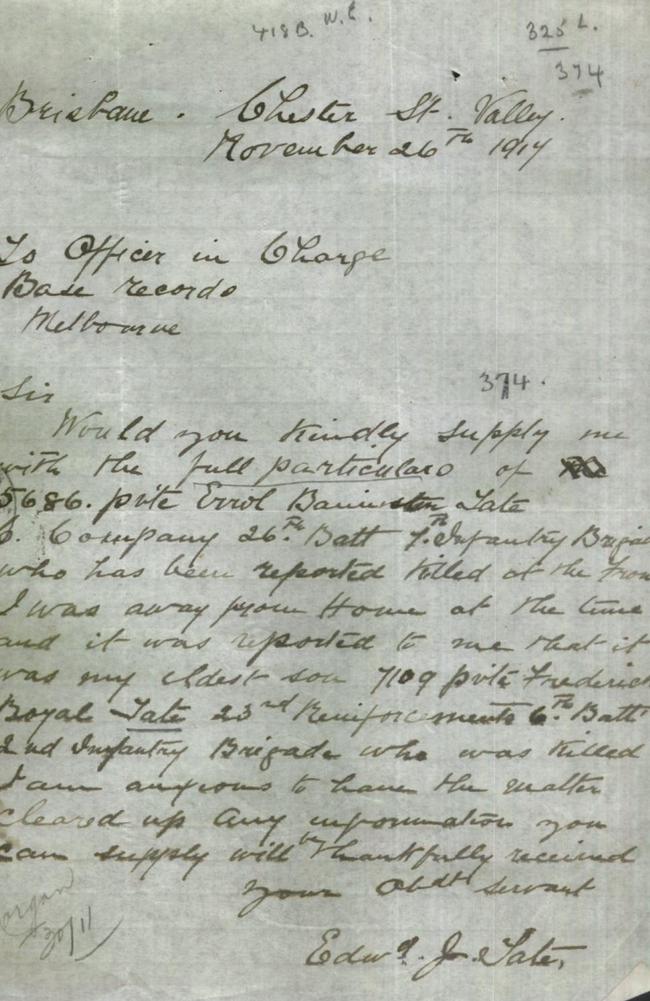 418B. W.C.
325 L.
374
Brisbane. Chester St. Valley.
November 26th 1917
To Officer in Charge
Base records
Melbourne
374.
Sir
Would you kindly supply me
with the full particulars of
5686. pvte Errol Bannister Tate
Company 26.th Batt 7.th Infantry Brigad
who has been reported killed at the Fron
I was away from Home at the time
and it was reported to me that it
was my eldest son 7109 pvte Frederick
Boyal Tate 23rd Reinforcements 6.th Batt
2nd Infantry Brigade who was killed
I am anxious to have the matter
cleared up any information you
can supply will be thankfully received
your Obdt servant
Edwd. J. Tate.
30/11